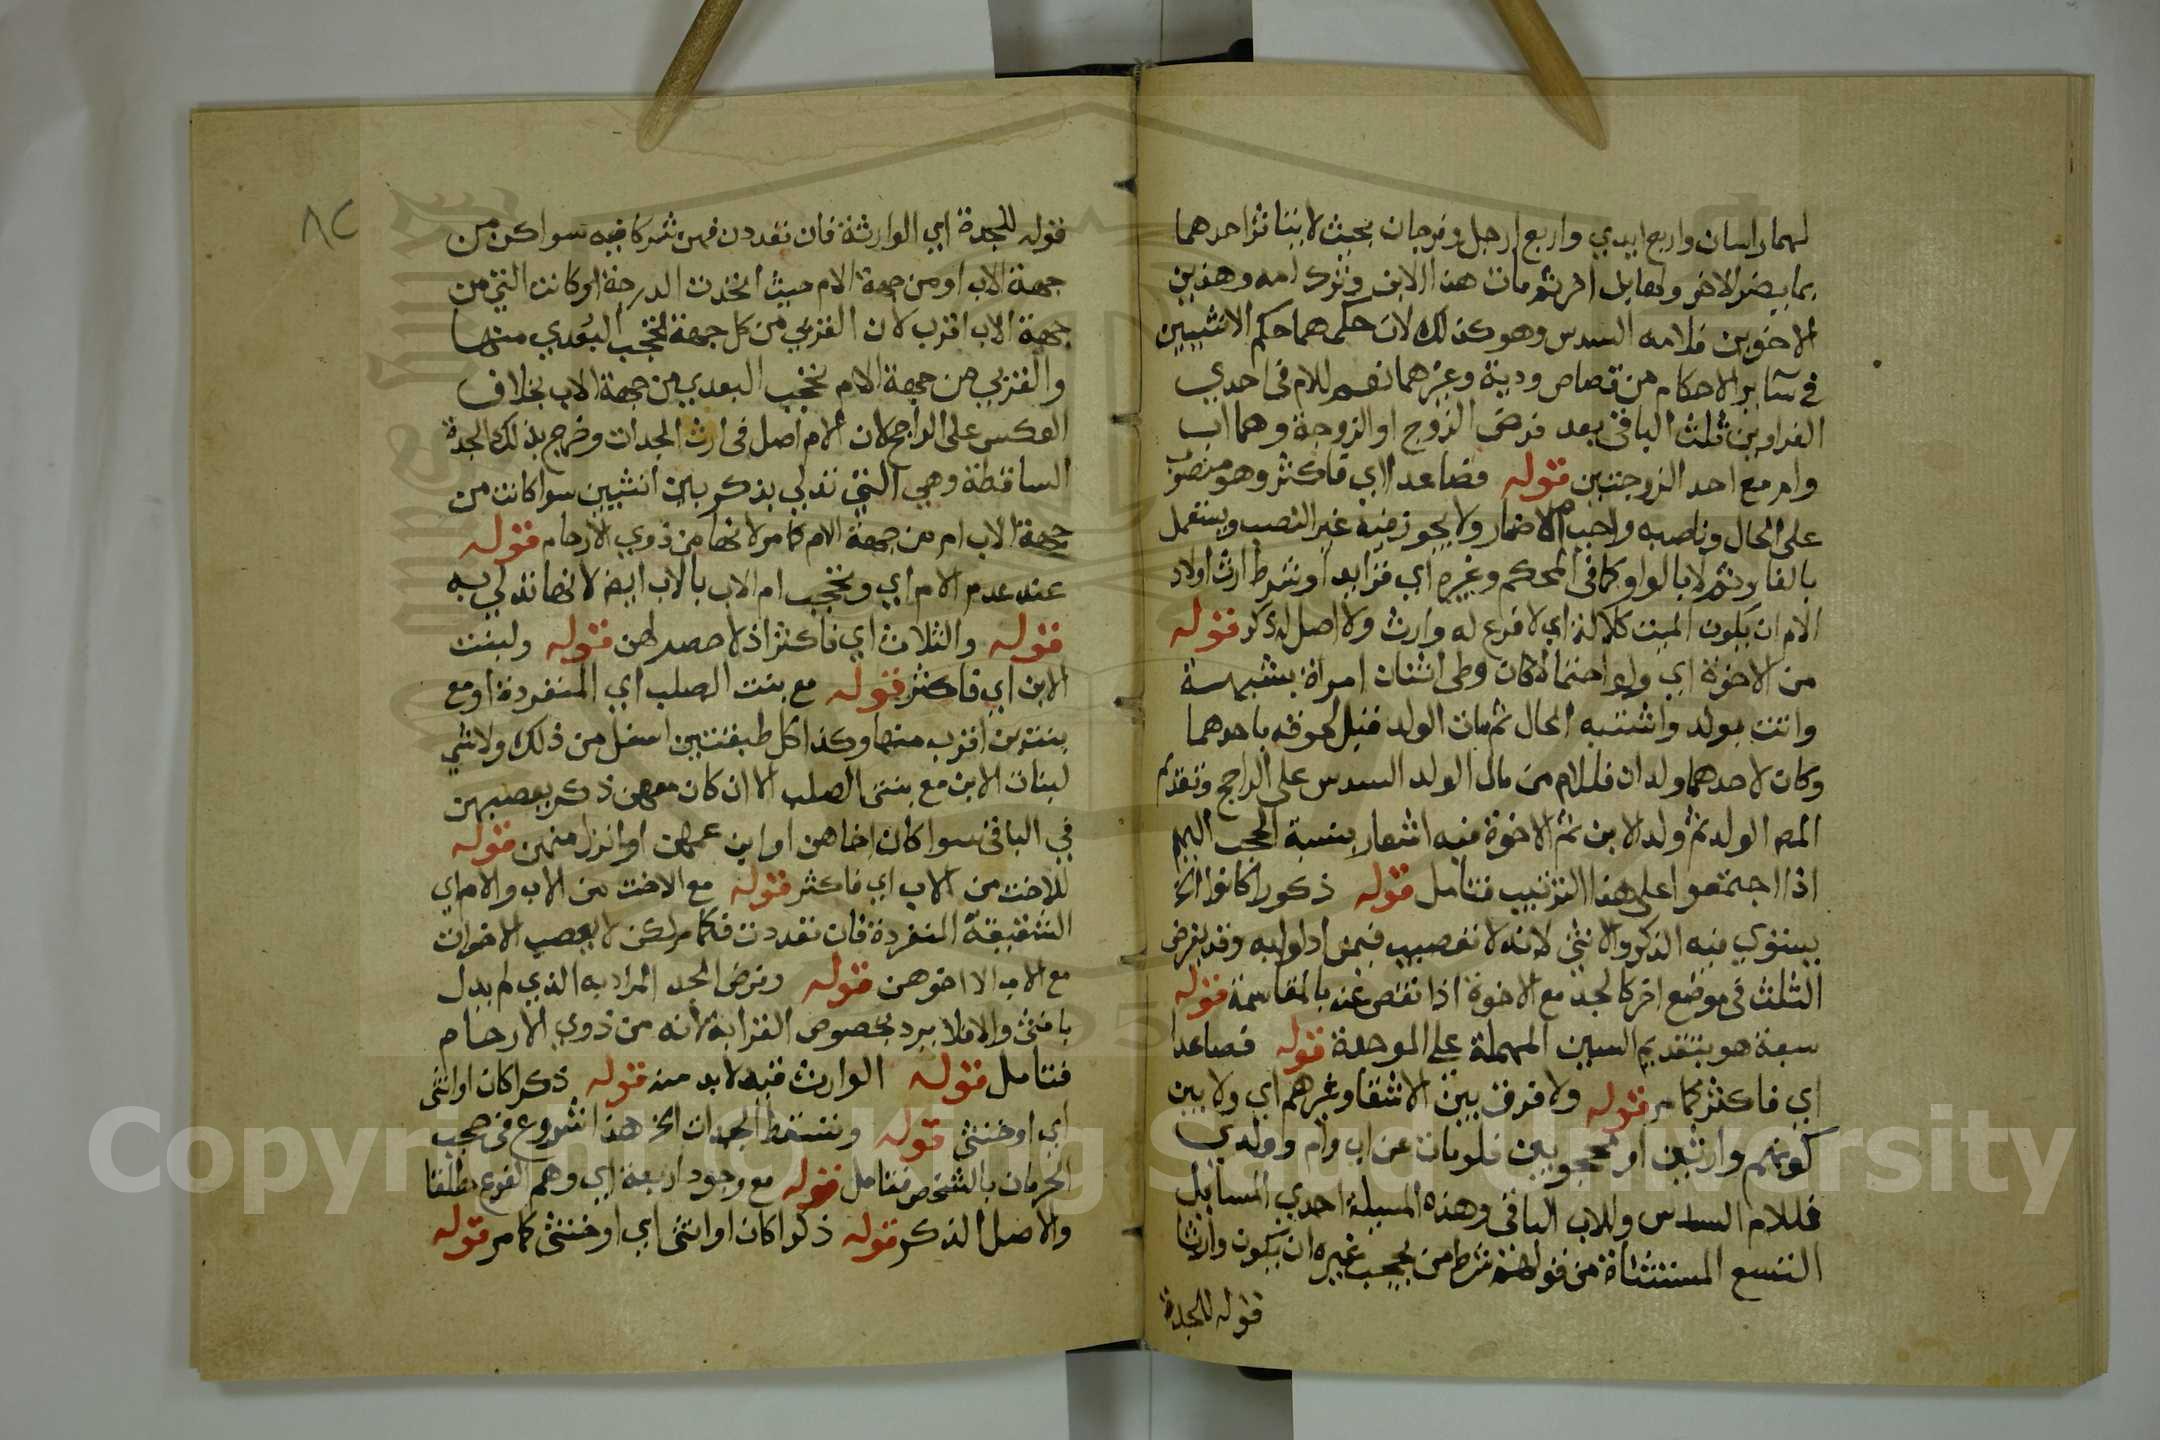 لهما راسان واربع ايدي واربع ارجل وفرجان بحيث لا يتاثر احدهما
بما يضر الاخر ولعابل اخر ثم مات هذا الابن وترك امه وهذين
الاخوين فلامه السدس وهو كذلك لان حكمهما حكم الاثنين
في سائر الاحكام من قصاص ودية وغيرهما نعم للام في احدي
الغراوين ثلث الباقي بعد فرض الزوج او الزوجة وهما اب
وام مع احد الزوجين قوله فصاعدا اي فاكثر وهو منصوب
على الحال وناصبه واجب الاضمار ولا يجوز فيه غير النصب ويستعمل
بالفا وثم لا بالواو كما في المحكم وغيره اي فزايدا وشرط ارث اولاد
الام ان يكون الميت كلالة اي لا فرع له وارث ولا اصل له ذكر قوله
من الاخوة اي ولو احتمالا كان وطى اثنان امراة بشبهة
واتت بولد واشتبه الحال ثم مات الولد قبل لحوقه باحدهما
وكان لاحدهما ولدان فللام من مال الولد السدس على الراجح وتقديم
المص الولد ثم ولد الابن ثم الاخوة فيه اشعار بنسبة الحجب اليهم
اذا اجتمعوا على هذا الترتيب فتامل قوله ذكورا كانوا الخ
يستوي فيه الذكر والانثى لانه لا تعصيب فيمن ادلوا به وقد يفرض
الثلث في موضع اخر كالجد مع الاخوة اذا نقص عنه بالمقاسمة قوله
سبعة هو بتقديم السين المهملة على الموحدة قوله فصاعدا
اي فاكثر كما مر قوله ولا فرق بين الاشقا وغيرهم اي ولا بين
كونهم وارثين او محجوبين فلو مات عن اب وام وولدي
فللام السدس وللاب الباقي وهذه المسيلة احدي المسايل
التسع المستثناة من قولهم شرط من يحجب غيره ان يكون وارثا
قوله للجدة
٨٢
قوله للجدة اي الوارثة فان تعددن فهن شركا فيه سوا كن من
جهة الاب او من جهة الام حيث اتحدت الدرجة او كانت التي من
جهة الاب اقرب لان القربي من كل جهة تحجب البعدي منها
والقربي من جهة الام تحجب البعدي من جهة الاب بخلاف
العكس على الراجح لان الام اصل في ارث الجدات وخرج بذلك الجدة
الساقطة وهي التي تدلي بذكر بين انثيين سوا كانت من
جهة الاب ام من جهة الام كما مر لانها من ذوي الارحام قوله
عند عدم الام اي وتحجب ام الاب بالاب ايض لانها تدلي به
قوله والثلاث اي فاكثر اذ لا حصر لهن قوله ولبنت
الابن اي فاكثر قوله مع بنت الصلب اي المنفردة او مع
بنت ابن اقرب منها وكذا كل طبقتين اسفل من ذلك ولا شي
لبنات الابن مع بنتي الصلب الا ان كان معهن ذكر يعصبهن
في الباقي سوا كان اخاهن او ابن عمهن او انزل منهن قوله
للاخت من الاب اي فاكثر قوله مع الاخت من الاب والام اي
الشقيقة المنفردة فان تعددت فكما مر لكن لا يعصب الاخوات
مع الاب الا اخوهن قوله وفرض الجد المراد به الذي لم يدل
بانثى والا فلا يرد بخصوص القرابة لانه من ذوي الارحام
فتامل قوله الوارث فيه لا بد منه قوله ذكرا كان او انثى
اي او خنثى قوله وتسقط الجدات الخ هذا شروع في حجب
الحرمان بالشخص فتامل قوله مع وجود اربعة اي وهم الفرع مطلقا
والاصل الذكر قوله ذكرا كان او انثى اي او خنثى كما مر قوله